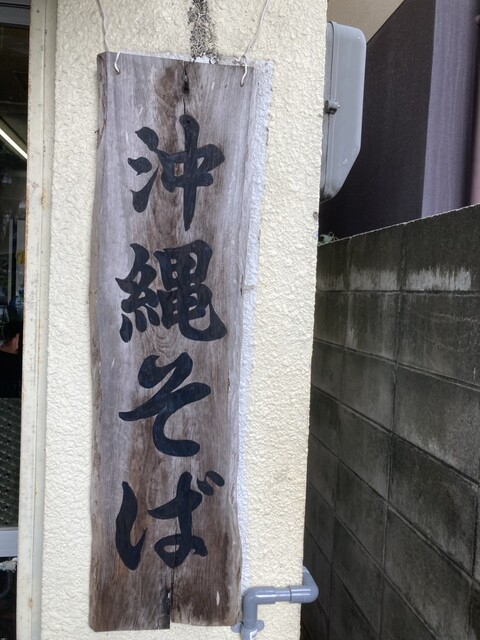 沖縄そば